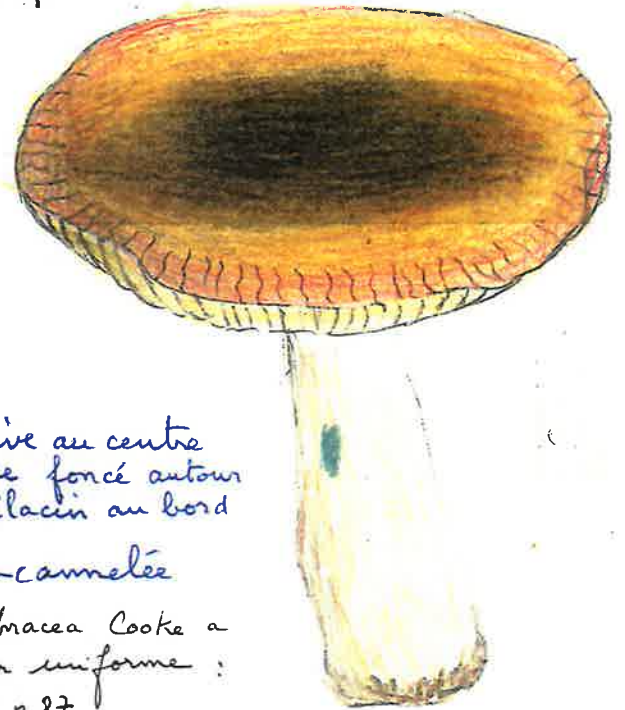 ive au centre
e foncé autour
lacin au bord
-cannelée
bracea Cooke a
r uniforme :
n 87